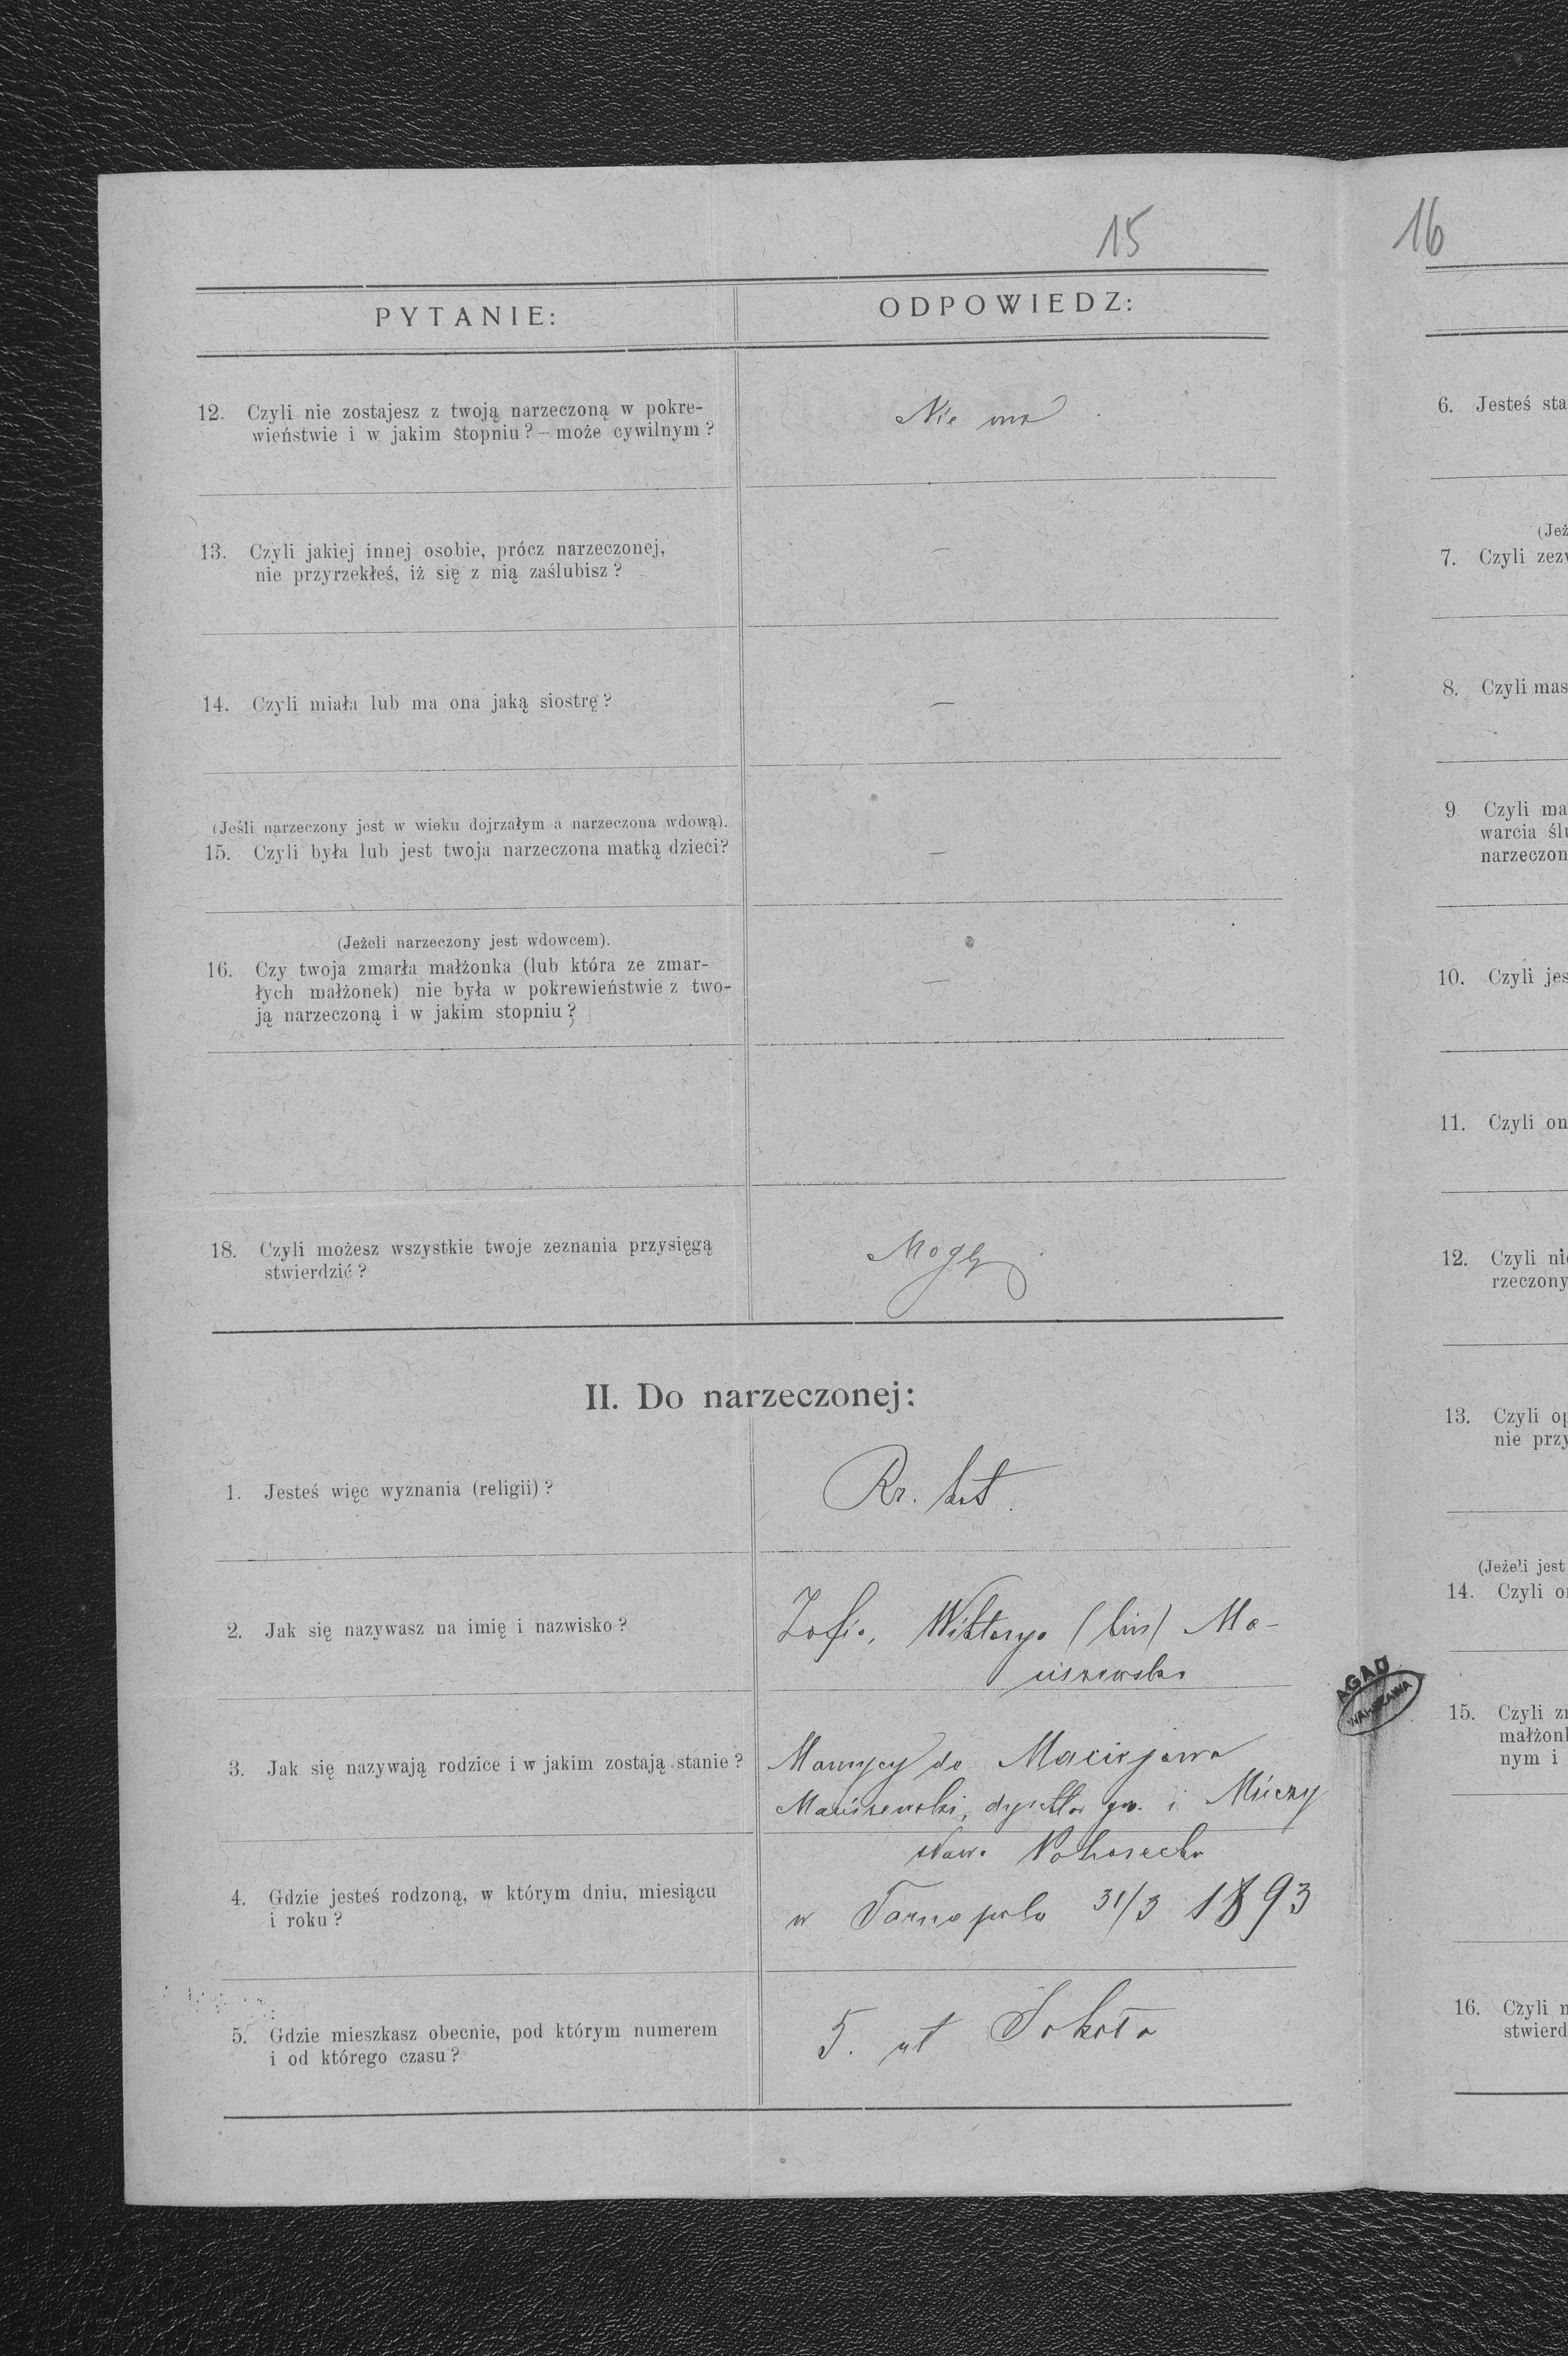 15
PYTANIE:
ODPOWIEDZ:
12. Czyli nie zostajesz z twoją narzeczoną w pokre-
wieństwie i w jakim stopniu? – może cywilnym?
Nie ma
13. Czyli jakiej innej osobie, prócz narzeczonej,
nie przyrzekłeś, iż się z nią zaślubisz?
—
14. Czyli miała lub ma ona jaką siostrę?
—
(Jeśli narzeczony jest w wieku dojrzałym a narzeczona wdową).
15. Czyli była lub jest twoja narzeczona matką dzieci?
—
(Jeżeli narzeczony jest wdowcem).
16. Czy twoja zmarła małżonka (lub która ze zmar-
łych małżonek) nie była w pokrewieństwie z two-
ją narzeczoną i w jakim stopniu?
—
18. Czyli możesz wszystkie twoje zeznania przysięgą
stwierdzić?
Mogę
II. Do narzeczonej:
1. Jesteś więc wyznania (religii)?
Rz. kat.
2. Jak się nazywasz na imię i nazwisko?
Zofia, Wiktorya (bin) Ma-
ciszewska
3. Jak się nazywają rodzice i w jakim zostają stanie?
Maurycy de Maciejowa
Maciszewski, dyrektor gm. i Mieczy
sława Pohorecka
4. Gdzie jesteś rodzoną, w którym dniu, miesiącu
i roku?
w Tarnopolu 31/3 1893
5. Gdzie mieszkasz obecnie, pod którym numerem
i od którego czasu?
5. ul Sokoła
16
6. Jesteś sta
(Jeż
7. Czyli zezw
8. Czyli mas
9. Czyli ma
warcia ślu
narzeczon
10. Czyli jes
11. Czyli on
12. Czyli nie
rzeczony
13. Czyli op
nie przy
(Jeżeli jest
14. Czyli o
AGAD
WARSZAWA
15. Czyli z
małżonk
nym i
16. Czyli m
stwierd